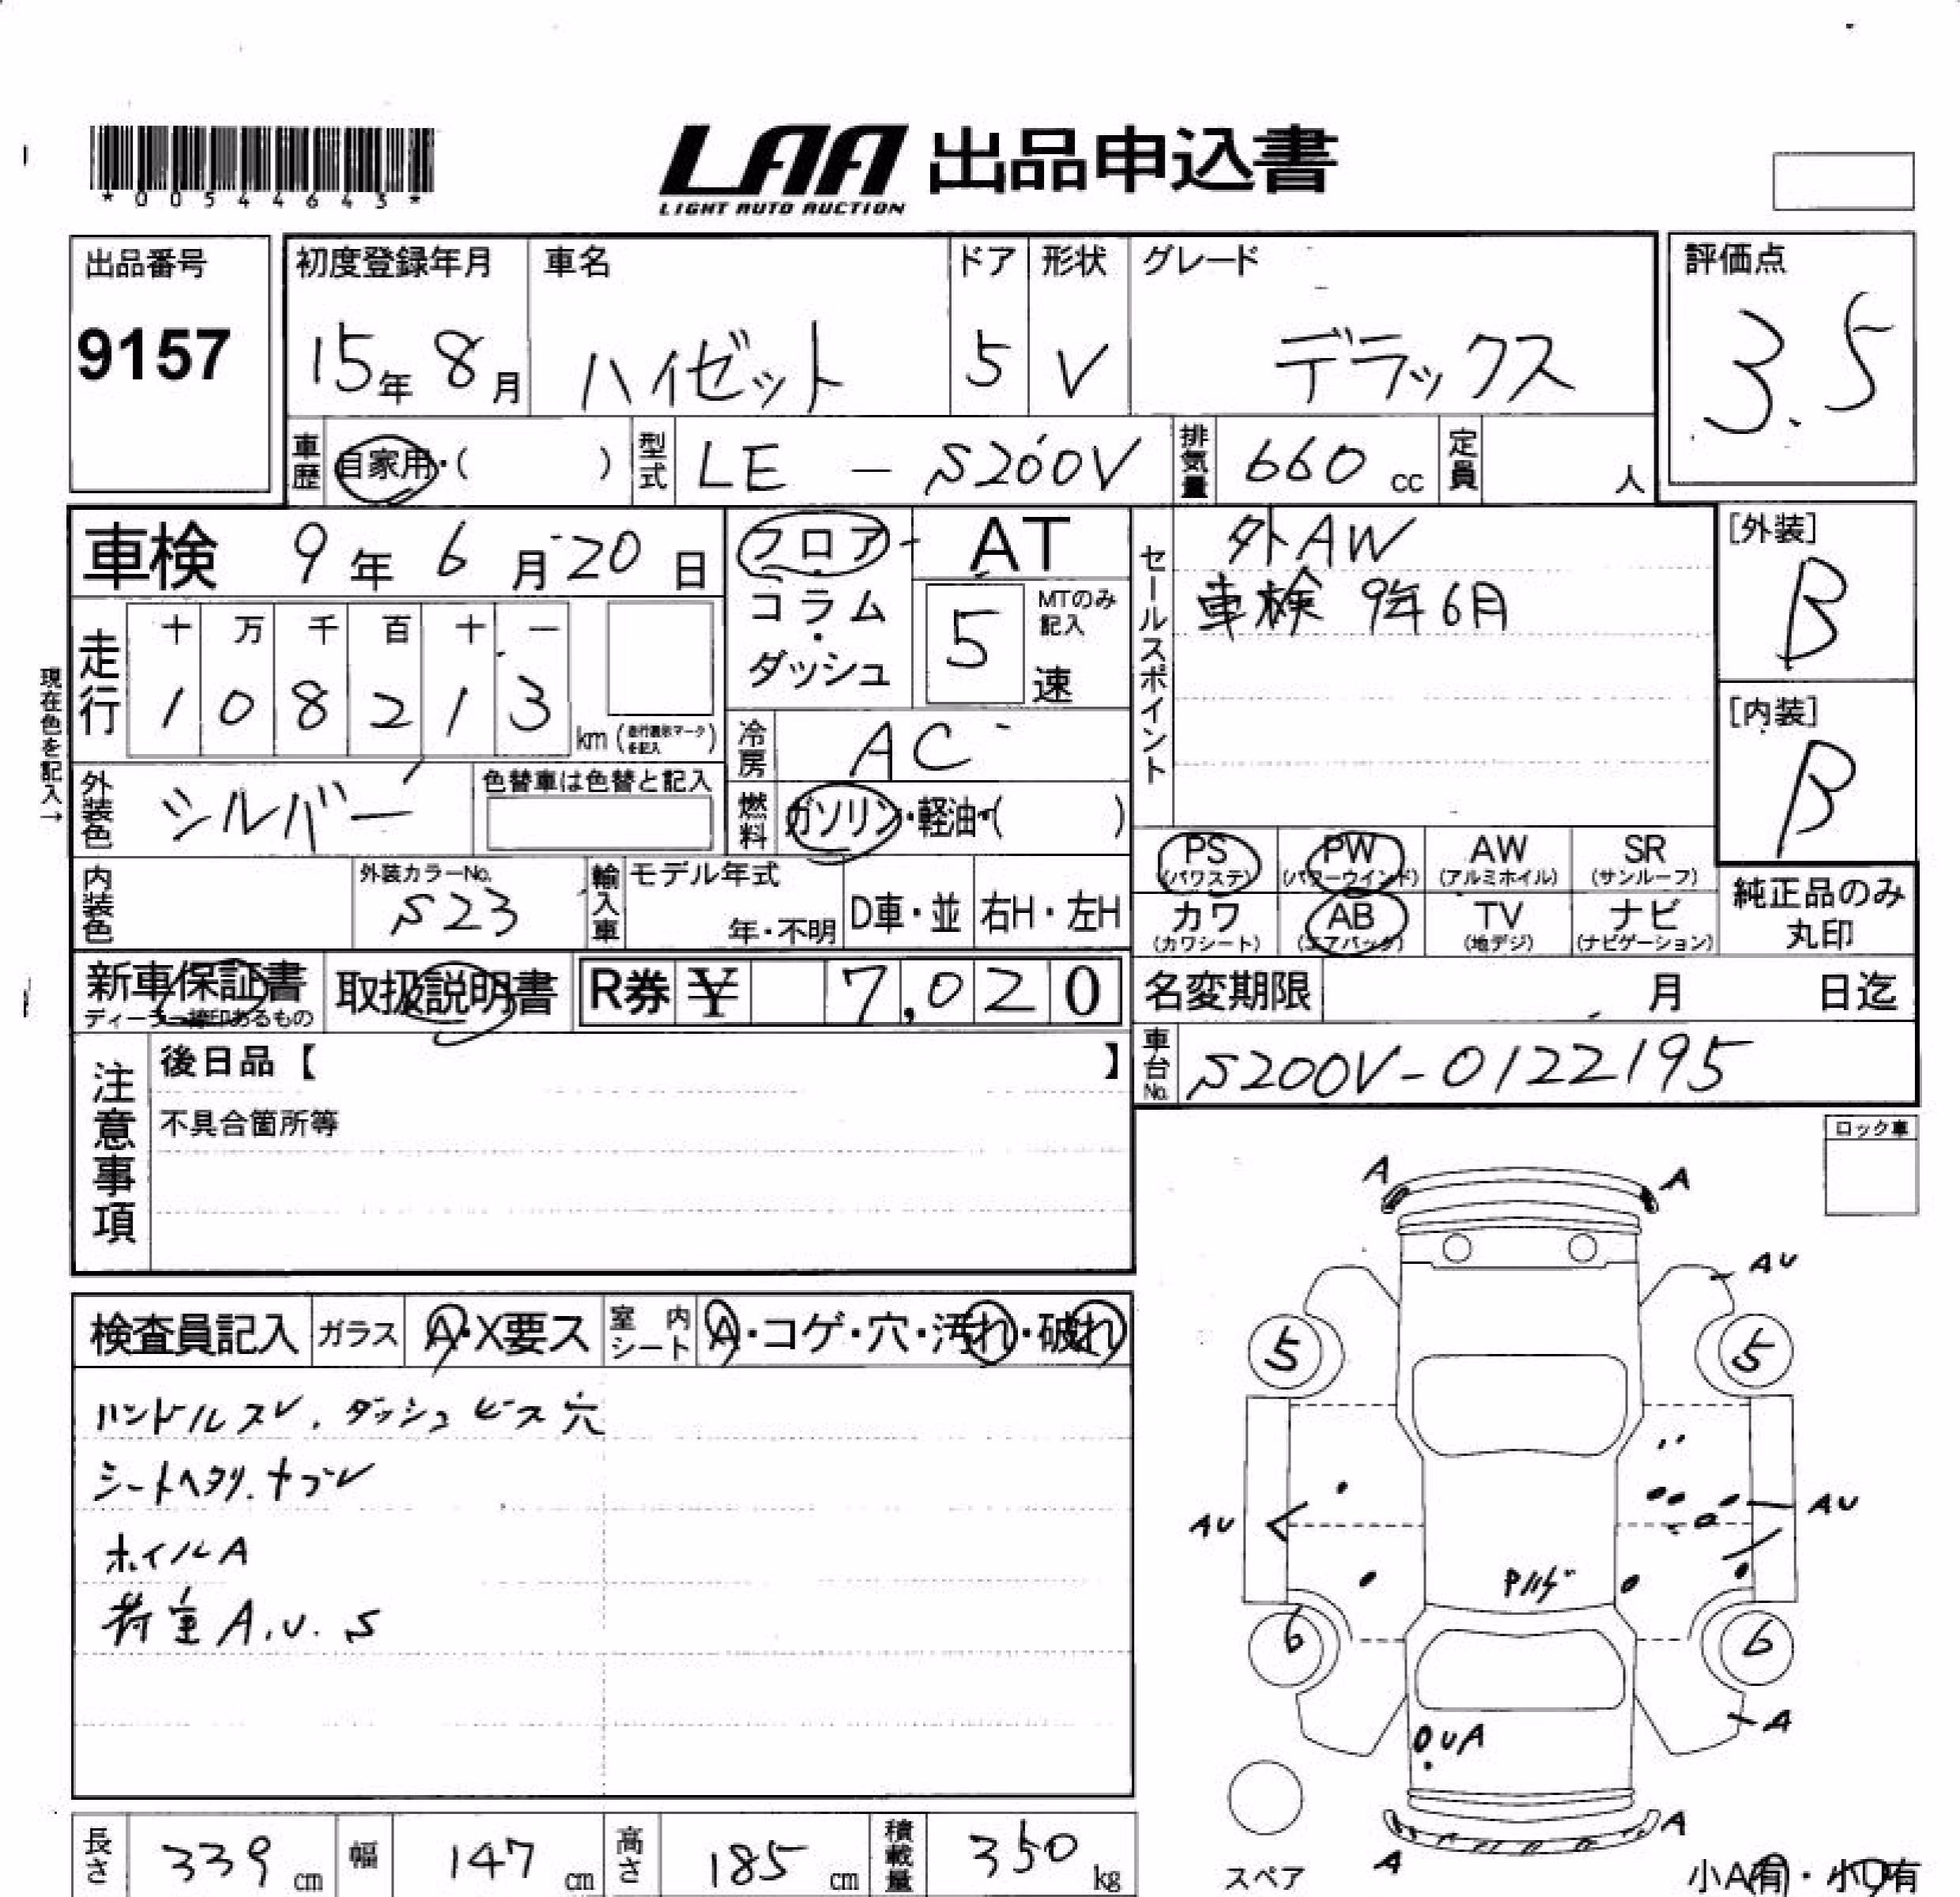 *00544643*
LAA 出品申込書
LIGHT AUTO AUCTION
出品番号 9157
初度登録年月 15年 8月
車名 ハイゼット
ドア 5
形状 V
グレード デラックス
評価点 3.5
車歴 自家用・( )
型式 LE - S200V
排気量 660 cc
定員 人
車検 9年 6月 20日
フロア・コラム・ダッシュ
AT
5 速 MTのみ記入
セールスポイント
外AW
車検 9年6月
[外装] B
[内装] B
現在色を記入→
走行 十 万 千 百 十 一
1 0 8 2 1 3 km
冷房 AC
外装色 シルバー
色替車は色替と記入
燃料 ガソリン・軽油・( )
内装色
外装カラーNo. S23
輸入車 モデル年式 年・不明
D車・並 右H・左H
PS (パワステ) PW (パワーウインド) AW (アルミホイル) SR (サンルーフ)
カワ (カワシート) AB (エアバック) TV (地デジ) ナビ (ナビゲーション)
純正品のみ丸印
新車保証書
取扱説明書
R券 ¥ 7,020
名変期限 月 日迄
注意事項
後日品【 】
不具合箇所等
車台No. S200V-0122195
ロック車
検査員記入 ガラス A・X要ス
室内シート A・コゲ・穴・汚れ・破れ
ハンドルスレ、ダッシュビス穴
シートヘタリ、ヤブレ
ホイルA
荷室A.U.S
A A
AU
5 5
AU AU
6 6
A
UA
A
A
スペア
小A有・小U有
長さ 339 cm
幅 147 cm
高さ 185 cm
積載量 350 kg